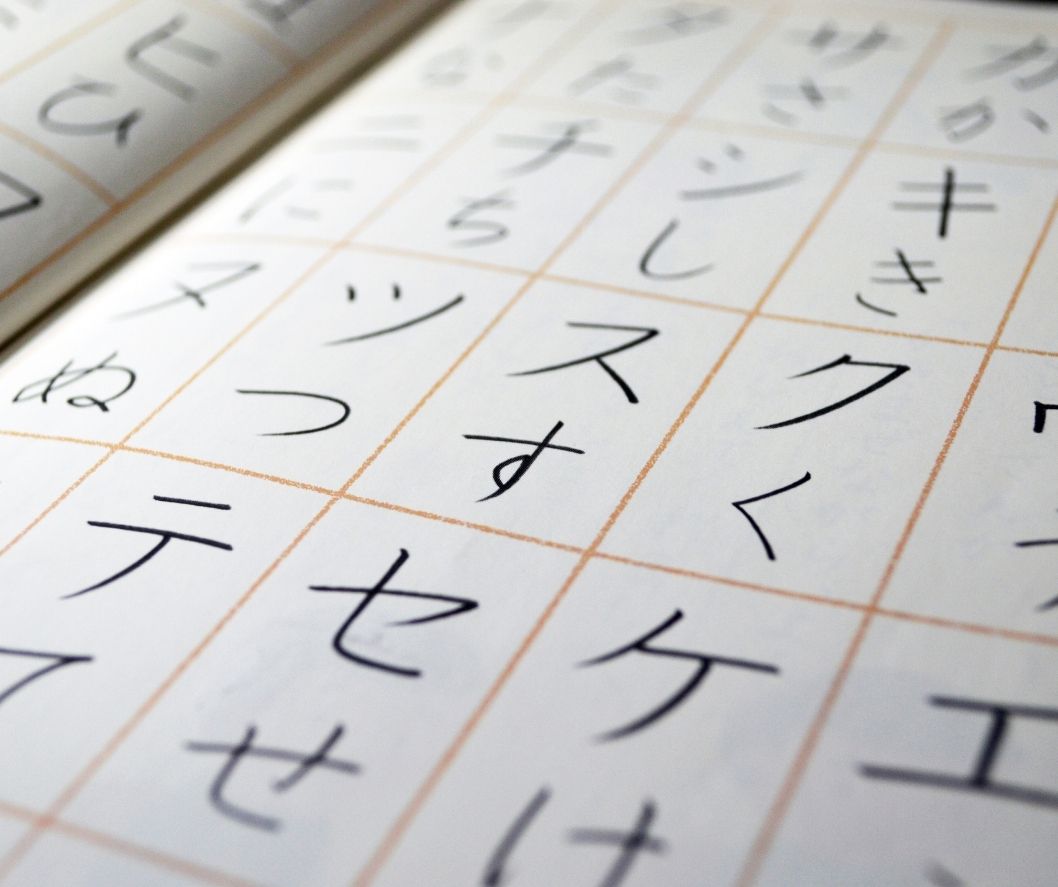 エ
カ
か
キ
き
ク
く
ケ
け
サ
さ
シ
し
ス
す
セ
せ
タ
た
チ
ち
ツ
つ
テ
て
ニ
に
ヌ
ぬ
ヒ
ひ